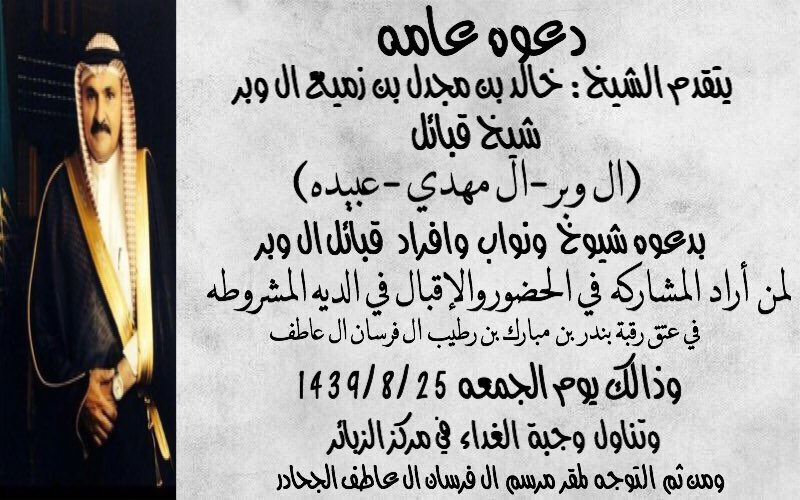 دعوه عامه
يتقدم الشيخ : خالد بن مجدل بن زميع ال وبر
شيخ قبائل
(ال وبر-ال مهدي -عبيده)
بدعوه شيوخ ونواب وافراد قبائل ال وبر
لمن أراد المشاركه في الحضور والإقبال في الديه المشروطه
في عتق رقبة بندر بن مبارك بن رطيب ال فرسان ال عاطف
وذالك يوم الجمعه 1439/8/25
وتناول وجبة الغداء في مركز الزبائر
ومن ثم التوجه لمقر مرسم ال فرسان ال عاطف الجحادر